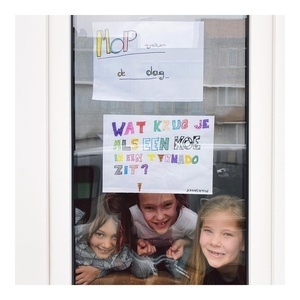 HOP
de dag
WAT KRIJG JE
ALS EEN KOE
IN EEN TYRNADO
ZIT?